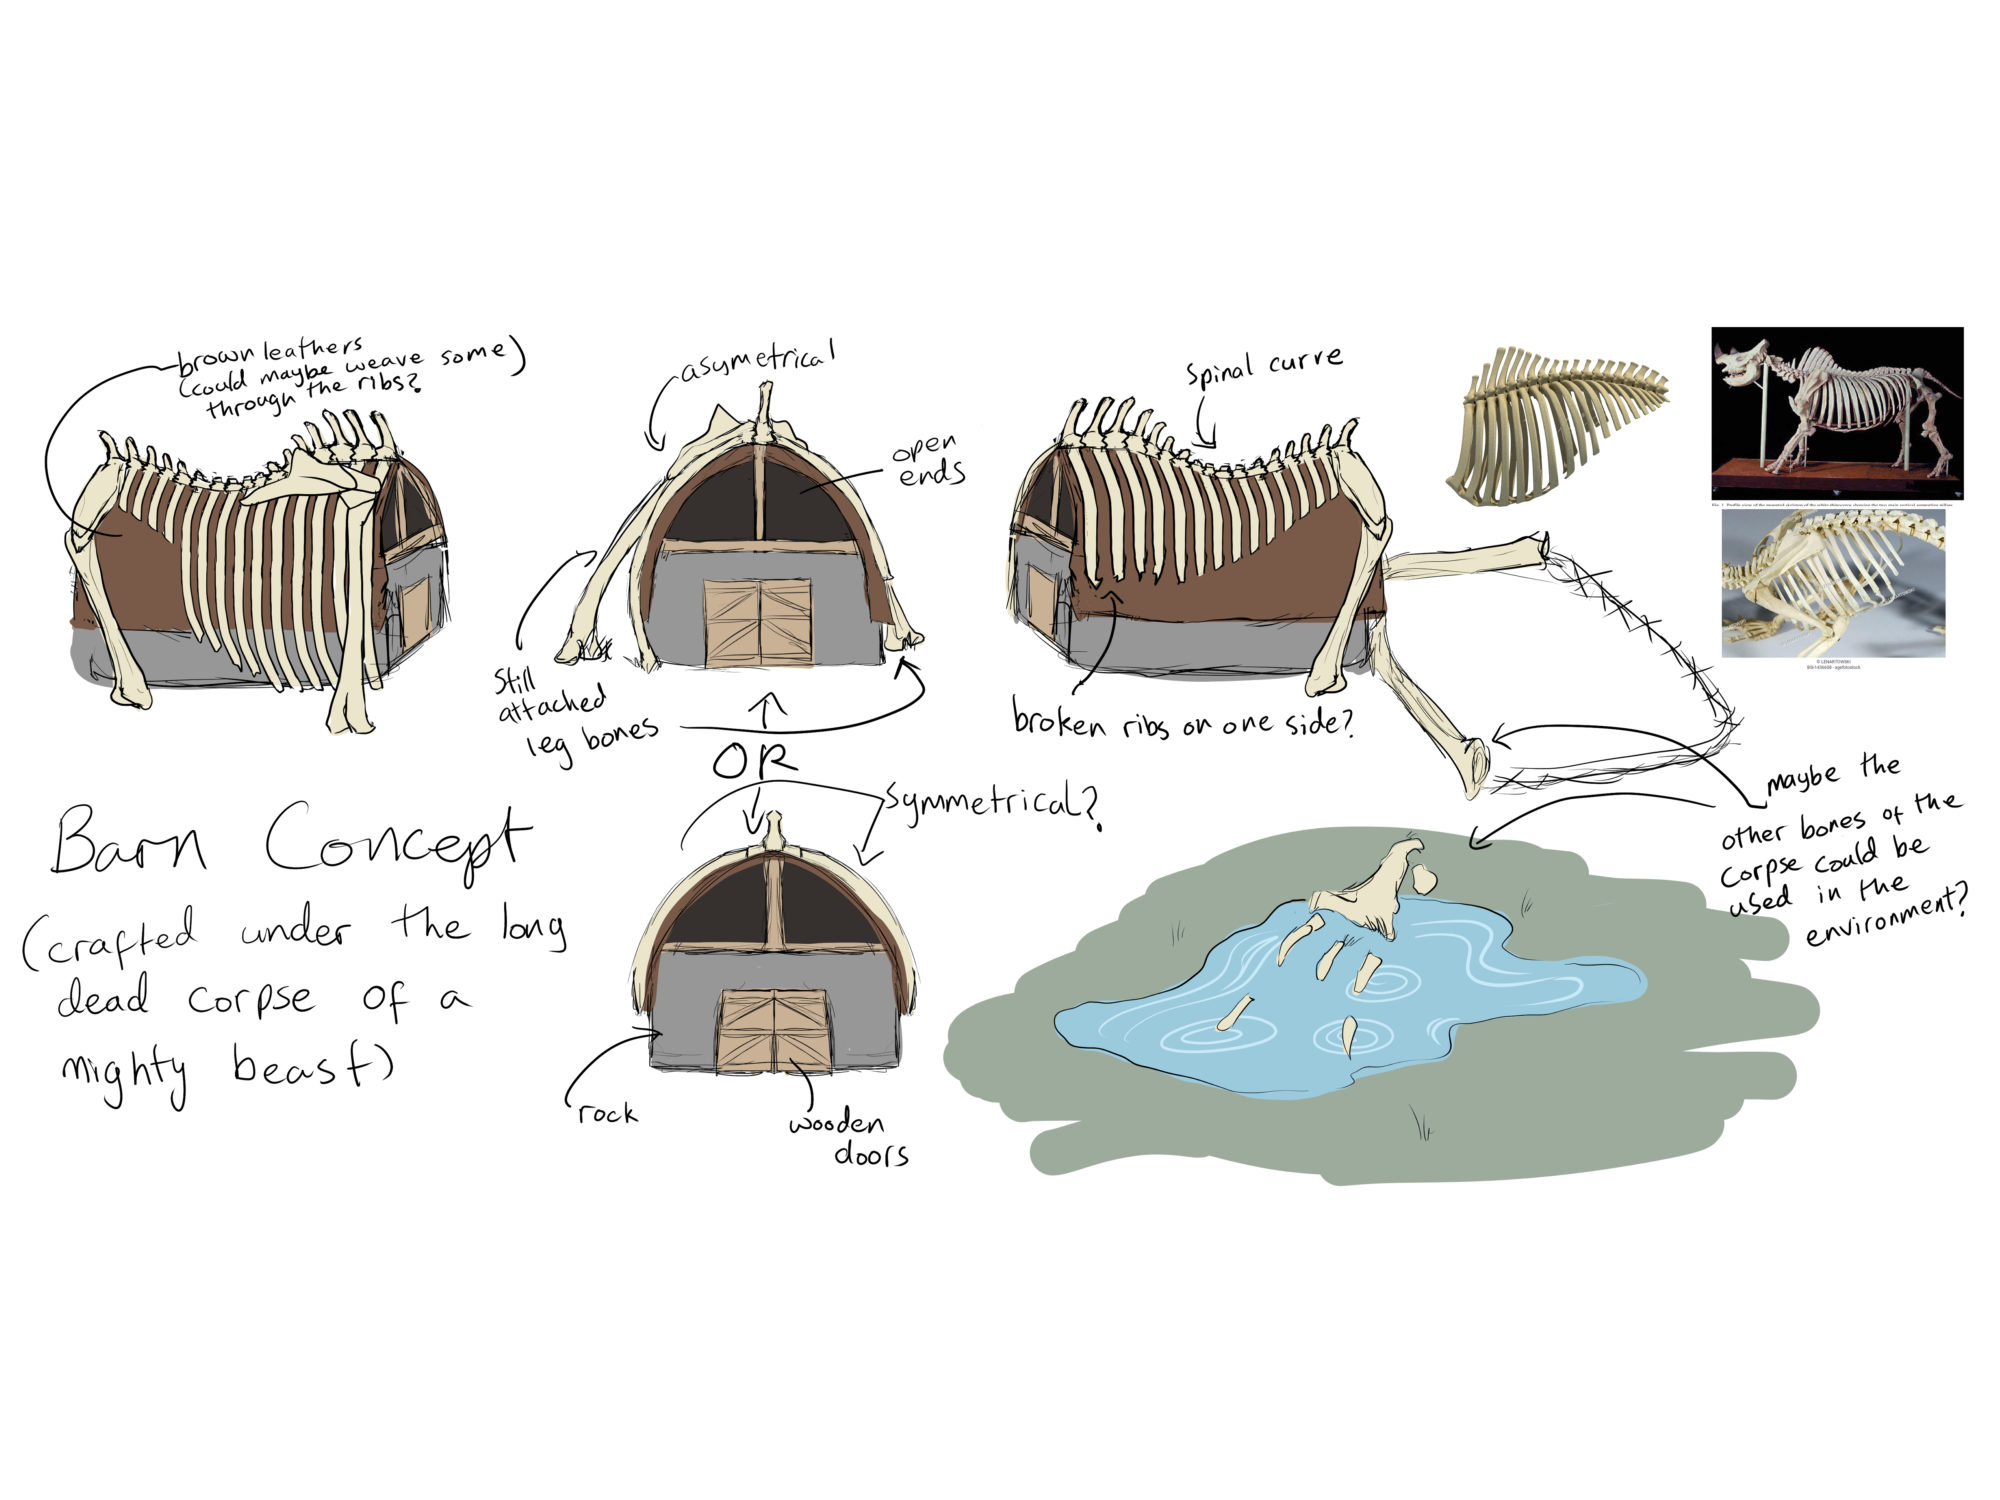 brown leathers
(could maybe weave some)
through the ribs?
asymetrical
open
ends
Spinal curve
Still
attached
leg bones
OR
Symmetrical?
broken ribs on one side?
maybe the
other bones of the
corpse could be
used in the
environment?
Barn Concept
(crafted under the long
dead corpse of a
mighty beast)
rock
wooden
doors
© LENARTOWSKI